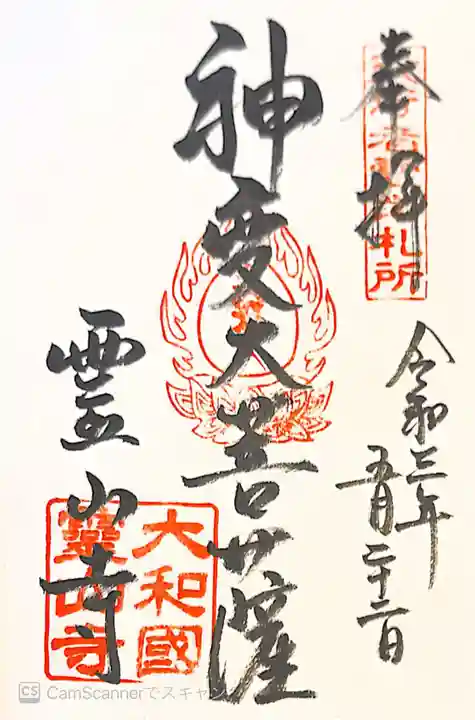 奉拝
札所
令和三年
五月二十二日
神変大菩薩
霊山寺
大和國
靈山寺
CS CamScannerでスキャン